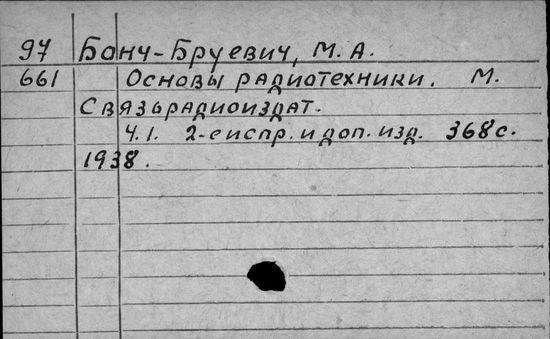 97 Бонч-Бруевич, М. А.
661 Основы радиотехники. М.
Связьрадиоиздат.
Ч. 1. 2-е испр. и доп. изд. 368 с.
1938.